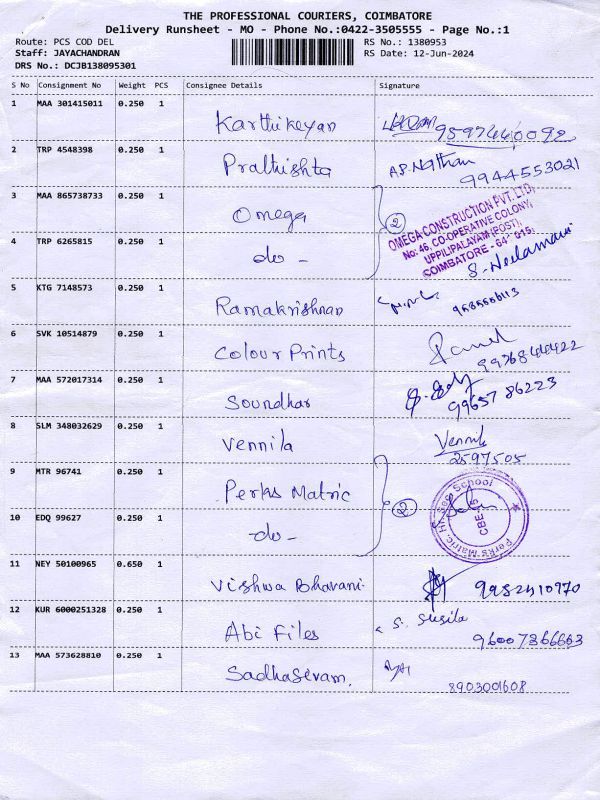 THE PROFESSIONAL COURIERS, COIMBATORE
Delivery Runsheet - MO - Phone No.:0422-3505555 - Page No.:1
Route: PCS COD DEL RS No.: 1380953
Staff: JAYACHANDRAN RS Date: 12-Jun-2024
DRS No.: DCJB138095301
S No Consignment No Weight PCS Consignee Details Signature
1 MAA 301415011 0.250 1
Karthikeyan
2 TRP 4548398 0.250 1
Prathishta A.P. Nathan
9944553021
3 MAA 865738733 0.250 1
Omega 2 OMEGA CONSTRUCTION PVT. LTD,
No: 46, CO-OPERATIVE COLONY,
UPPILIPALAYAM (POST),
COIMBATORE - 641 015.
4 TRP 6265815 0.250 1
do - S. Neelamani
5 KTG 7148573 0.250 1
Ramakrishnan
6 SVK 10514879 0.250 1
Colour Prints
7 MAA 572017314 0.250 1
Soundhar 99657 86223
8 SLM 348032629 0.250 1
Vennila
2597505
9 MTR 96741 0.250 1
Perks Matric 2 Perks Matric. Hr. Sec School
CBE-15
10 EDQ 99627 0.250 1
do -
11 NEY 50100965 0.650 1
Vishwa Bhavani 9952410970
12 KUR 6000251328 0.250 1
Abi Files S. Susila
96007366663
13 MAA 573628810 0.250 1
Sadhasivam.
8903001608